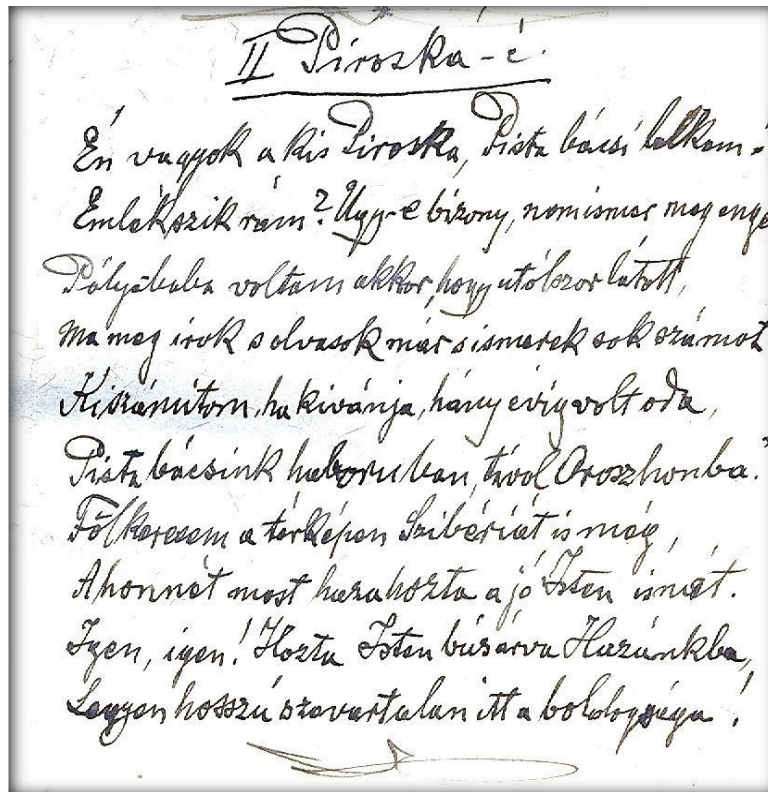 II Piroska-é.
Én vagyok a kis Piroska, Pista bácsi lelkem-
Emlékszik rám? Ugy-e bizony, nem ismer meg enge
Pólyásbaba voltam akkor, hogy utólszor látott,
Ma meg irok s olvasok már s ismerek sok számot
Kiszámitom, ha kivánja, hány évig volt oda,
Pista bácsink haboruban, távol Oroszhonba?
Fölkeresem a térképen Szibériát is még,
Ahonnét most hazahozta a jó Isten ismét.
Igen, igen! Hozta Isten búsárva Hazánkba,
Legyen hosszú zavartalan itt a boldogsága!